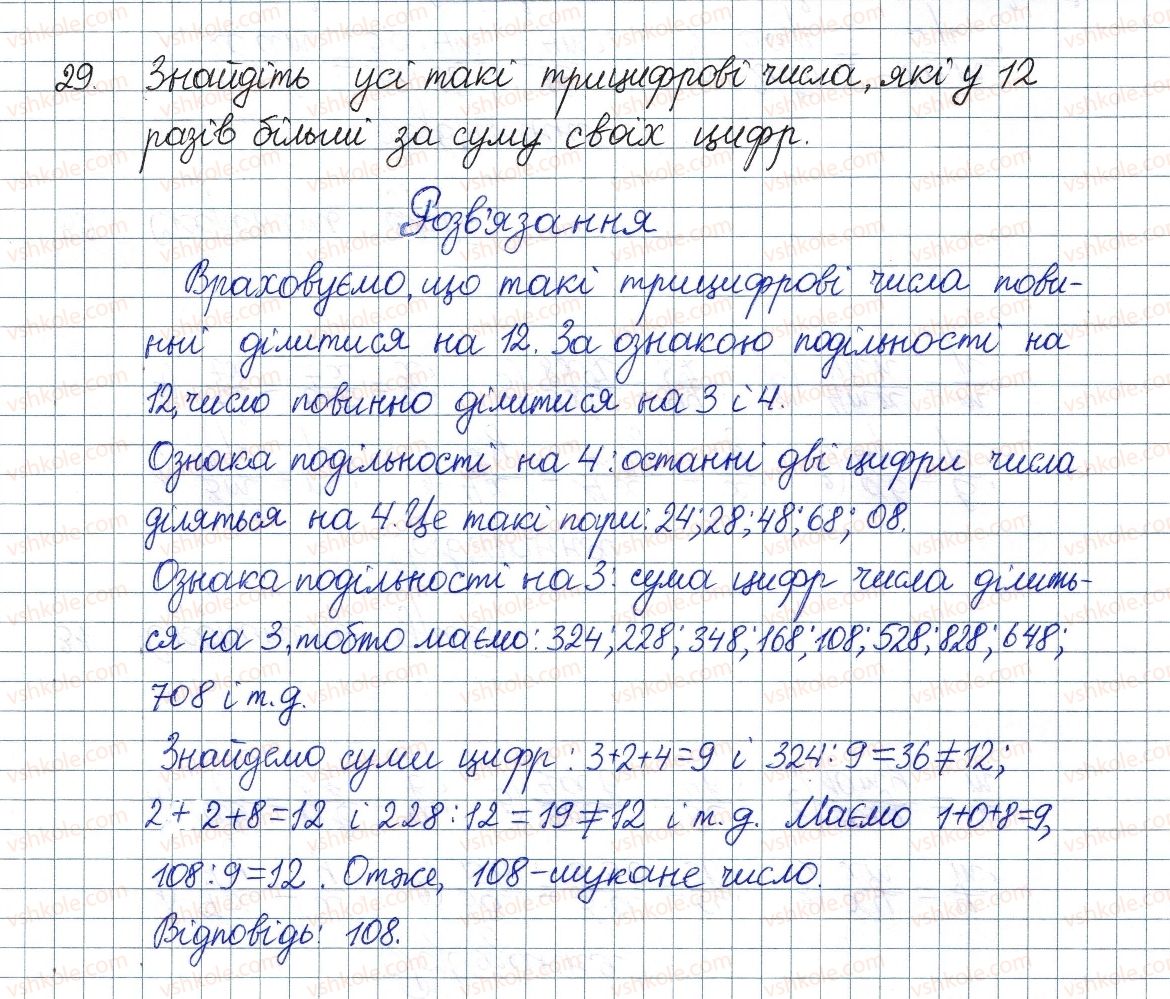 29. Знайдіть усі такі трицифрові числа, які у 12
разів більші за суму своїх цифр.
Розв'язання
Враховуємо, що такі трицифрові числа пови-
нні ділитися на 12. За ознакою подільності на
12, число повинно ділитися на 3 і 4.
Ознака подільності на 4: останні дві цифри числа
діляться на 4. Це такі пари: 24; 28; 48; 68; 08.
Ознака подільності на 3: сума цифр числа ділить-
ся на 3, тобто маємо: 324; 228; 348; 168; 108; 528; 828; 648;
708 і т.д.
Знайдемо суми цифр: 3+2+4=9 і 324:9=36≠12;
2+2+8=12 і 228:12=19≠12 і т.д. Маємо 1+0+8=9,
108:9=12. Отже, 108-шукане число.
Відповідь: 108.